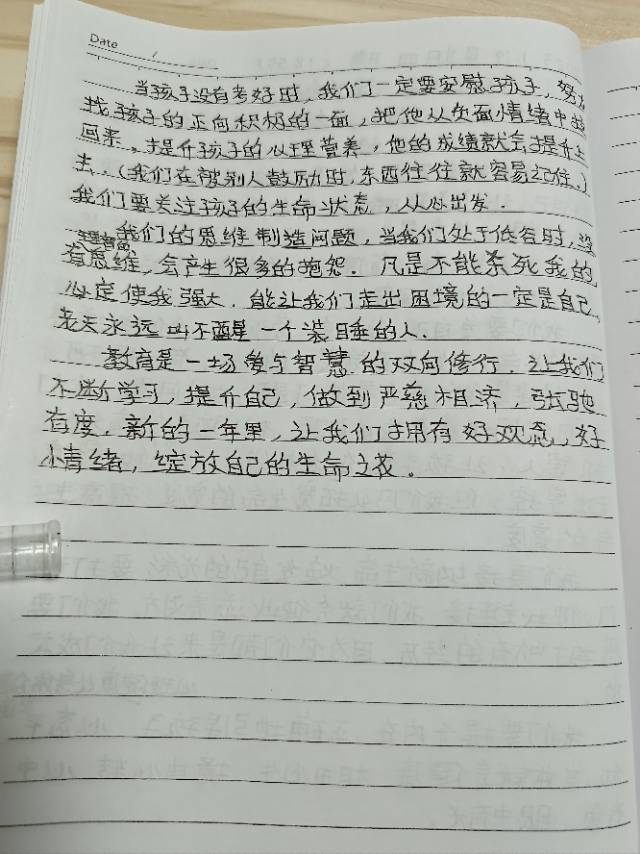 Date
当孩子没有考好时,我们一定要安慰孩子,努力
找孩子的正向积极的一面,把他从负面情绪中
回来,提升孩子的心理营养,他的成绩就会提升上
去.(我们在被别人鼓励时,东西往往就容易记住.)
我们要关注孩子的生命状态,从心出发.
我们的思维制造问题,当我们处于低谷时,
有思维,会产生很多的抱怨.凡是不能杀死我的,
必定使我强大.能让我们走出困境的一定是自己,
老天永远叫不醒一个装睡的人.
教育是一场爱与智慧的双向修行.让我们
不断学习,提升自己,做到严慈相济,张弛
有度.新的一年里,让我们拥有好观念,好
情绪,绽放自己的生命之花.